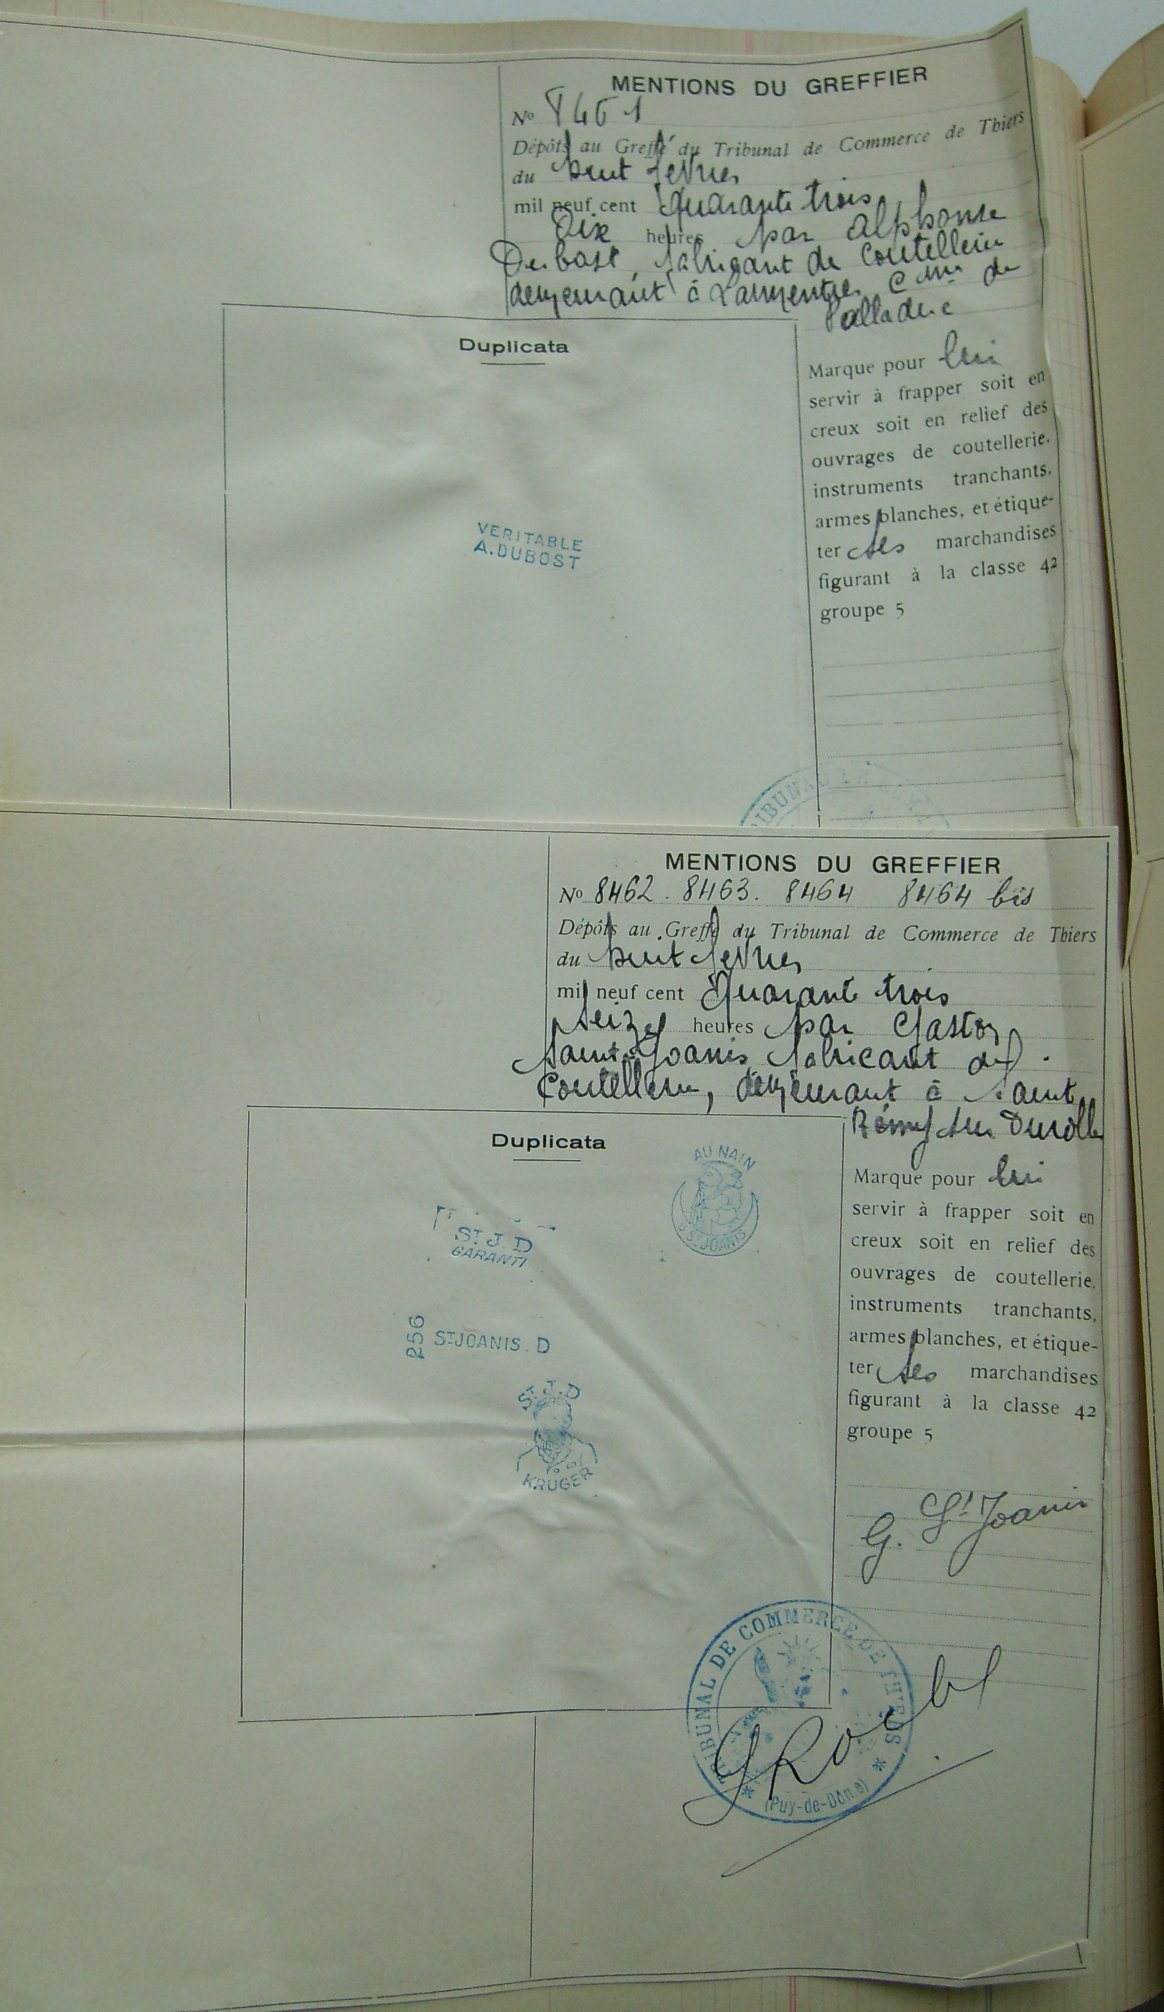 MENTIONS DU GREFFIER
No 8461
Dépôts au Greffe du Tribunal de Commerce de Thiers
du huit février
mil neuf cent Quarante trois
Dix heures par Alphonse
Dubost, fabricant de Coutellerie
demeurant à Cne de
Palladuc
Duplicata
Marque pour lui
servir à frapper soit en
creux soit en relief des
ouvrages de coutellerie,
instruments tranchants,
armes blanches, et étique-
ter ses marchandises
figurant à la classe 42
groupe 5
VERITABLE
A. DUBOST
TRIBUNAL
MENTIONS DU GREFFIER
No 8462. 8463. 8464 8464 bis
Dépôts au Greffe du Tribunal de Commerce de Thiers
du huit février
mil neuf cent Quarante trois
Seize heures par Gaston
Saint-Joanis fabricant de
Coutellerie, demeurant à Saint
Rémy sur Durolle
Duplicata
AU NAIN
S ST JOANIS
ST J. D
GARANTI
256
ST JOANIS. D
ST. J. D
KRUGER
Marque pour lui
servir à frapper soit en
creux soit en relief des
ouvrages de coutellerie,
instruments tranchants,
armes blanches, et étique-
ter ses marchandises
figurant à la classe 42
groupe 5
G. St Joanis
TRIBUNAL DE COMMERCE DE THIERS
(Puy-de-Dôme)